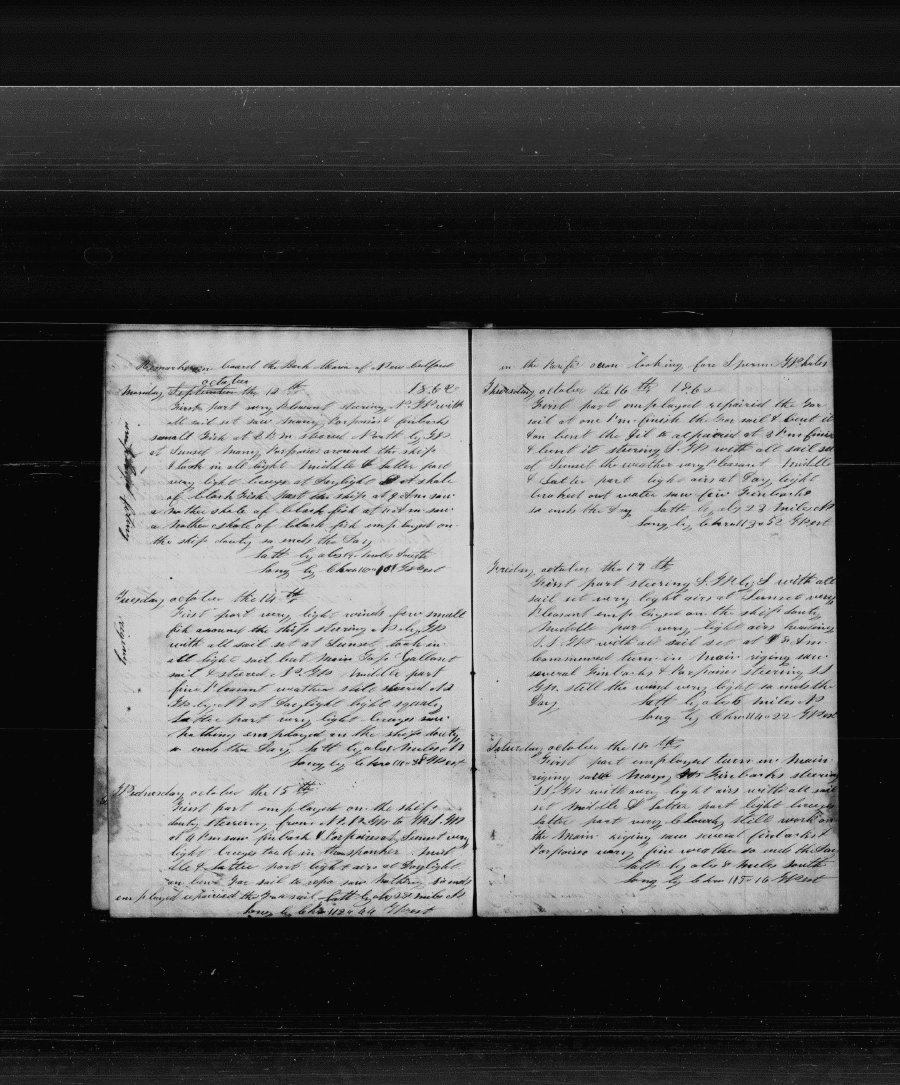 Remarks on board the Bark Maria of New Bedford
october
Monday September the 13 th 1862
First part very pleasant steering N. W with
all sail set saw many Porpoises finbacks
small Fish at 4 Pm steered North by W
at Sunset many Porpoises around the ship
took in all light Middle & latter part
very light breeze at Daylight A Skole
of black Fish past the ship at 9 Am saw
a nother skole of black fish at 11 Am saw
a nother skole of black fish employed on
the ship dauty so ends the Day
Latt by obs miles South
Long by Chro West
Tuesday october the 14 th
First part very light winds few small
fish around the ships steering N by W
with all sail set at Sunset took in
all light sail but Main Topp Gallant
sail & steered N. W Middle part
fine Pleasant weather still steered
W. by N at Daylight light squaly
Latter part very light breezes saw
Nothing employed on the ships dauty
so ends this Day Latt by obs miles N
Long by Chro 110 38 West
Wednesday october the 15 th
First part employed on the ship
dauty steering from to
at 4 Pm saw finback & Porpoises at Sunset very
light breezes took in the spanker Mid
dle & Latter part light airs at Daylight
un bent For sail to repa saw Nothing so ends
employed repaired the Foar sail Latt by obs 32 miles N
Long by Chro 112 o 44 West
in the Pacific ocean looking for Sperm Whales
Thursday october the 16 th 1862
First part employed repaired the For
sail at one Pm finish the For sail & bent it
& un bent the Gib & repaired at 3 Pm finis
& bent it steering S. W with all sail se
at Sunset the weather very Pleasant Middle
& Latter part light airs at Day light
broked out water saw few Finbacks
so ends the Day Latt by obs 23 miles N
Long by Chro 113 o 52 West
Friday october the 17 th
First part steering S. W by S with all
sail set very light airs at Sunset very
Pleasant employed on the ship dauty
Middle part very light airs heading
S. S W with all sail set at 8 Am
commenced turn in Main riging saw
several Finbacks & Porpoises steering S S
W. still the wind very light so ends the
Day Latt by obs 6 miles N
Long by Chro 114 o 22 West
Saturday october the 18 th
First part employed turn in Main
riging saw Many Finbacks steering
S S. W with very light airs with all sail
set Middle & Latter part light breezes
latter part very cloudy still work on
the Main riging saw several finbacks &
Porpoises very fine weather so ends the Day
Latt by obs 8 miles South
Long by Chro 115 o 16 West